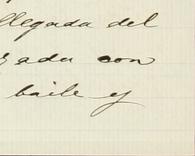 llegada del
zada con
baile y